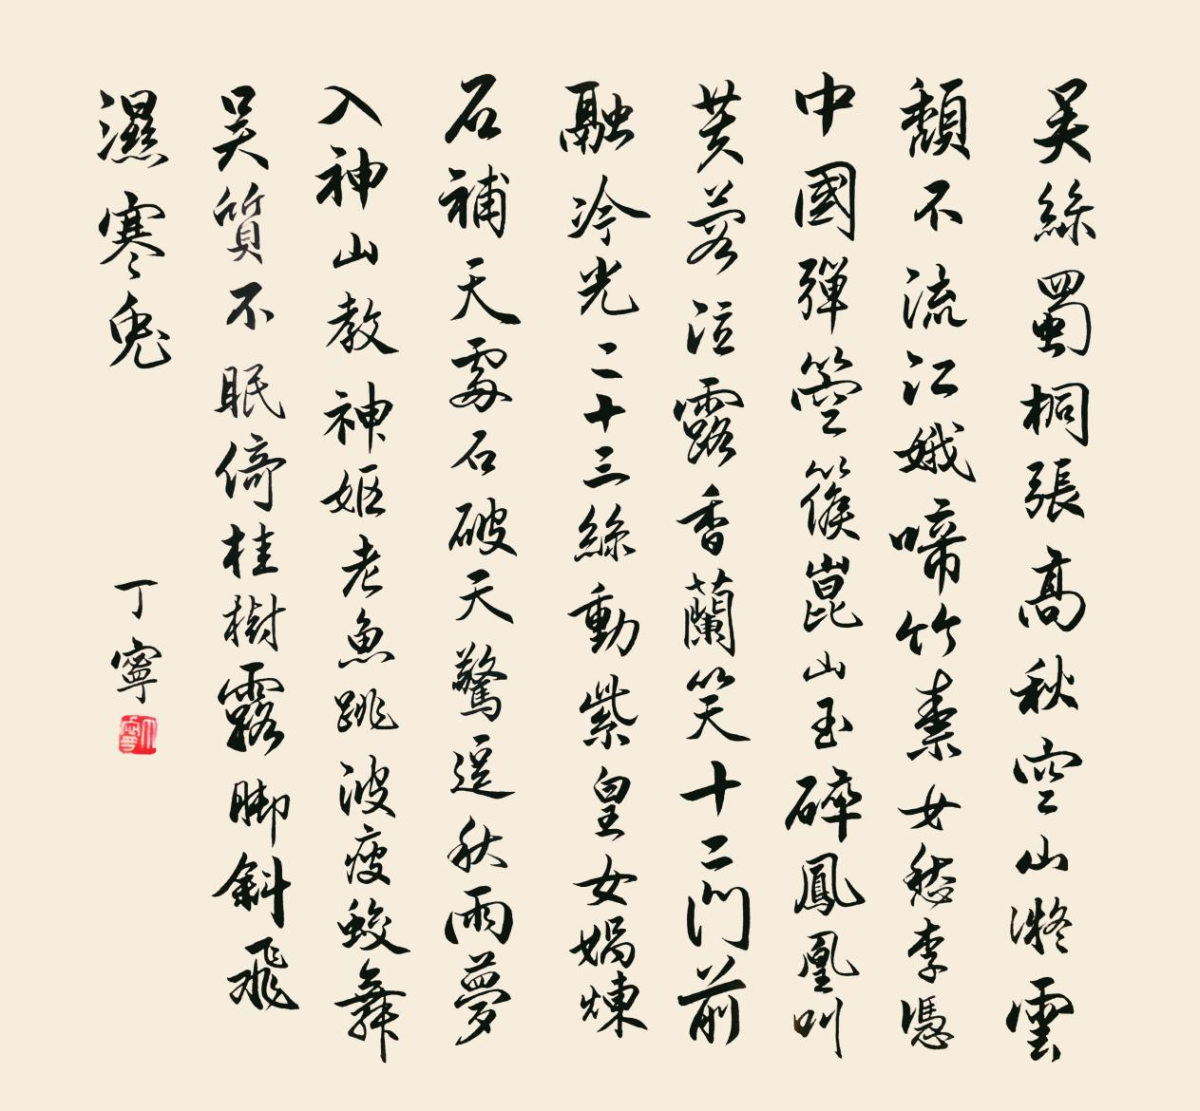 吴絲蜀桐張高秋空山凝雲
頽不流江娥啼竹素女愁李憑
中國彈箜篌崑山玉碎鳳凰叫
芙蓉泣露香蘭笑十二門前
融冷光二十三絲動紫皇女媧煉
石補天處石破天驚逗秋雨夢
入神山教神嫗老魚跳波瘦蛟舞
吴質不眠倚桂樹露脚斜飛
濕寒兔
丁寧
丁寧